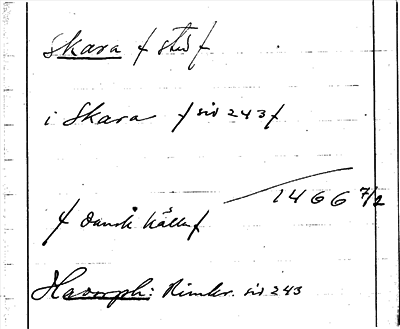 Skara / stad /
i Skara / sid 243 /
1466 7/2
/ Dansk källa /
Havorph: Rimkr. sid 243